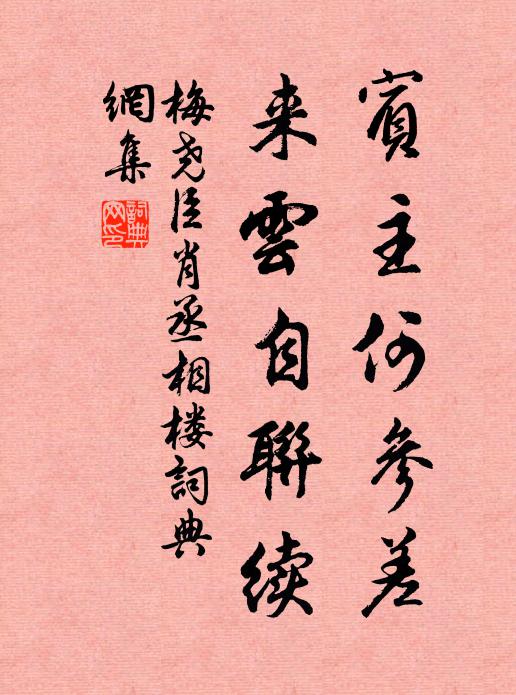 賓主何參差
来雲自聯续
梅尧臣肖丞相楼詞典
網集
詞典網印